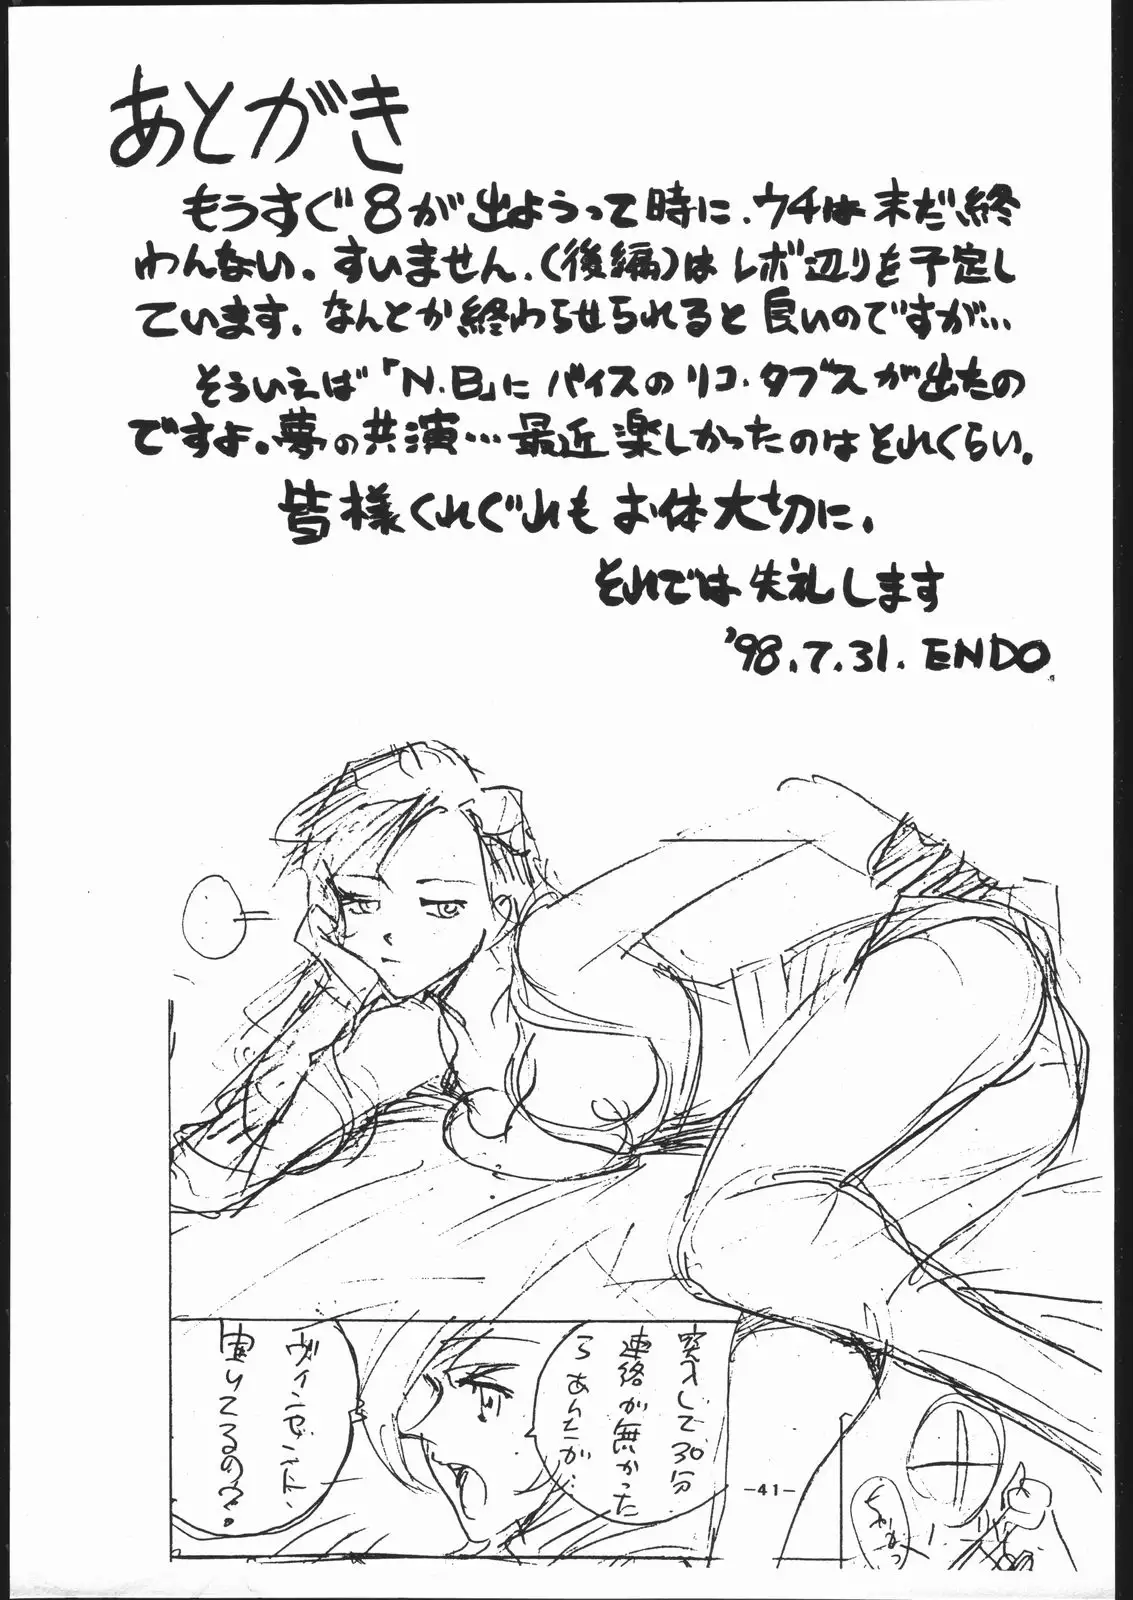 あとがき
もうすぐ8が出ようって時に、ウチは未だ終
わんない。すいません、(後編)はレボ辺りを予定し
ています。なんとか終わらせられると良いのですが…
そういえば「N.B」にバイスのリコ・タブスが出たの
ですよ。夢の共演…最近楽しかったのはそれくらい。
皆様くれぐれもお体大切に。
それでは失礼します
'98.7.31. ENDO
突入して30分
連絡が無かった
らあんたが…
ヴィンセント、
聞いてるの?
-41-